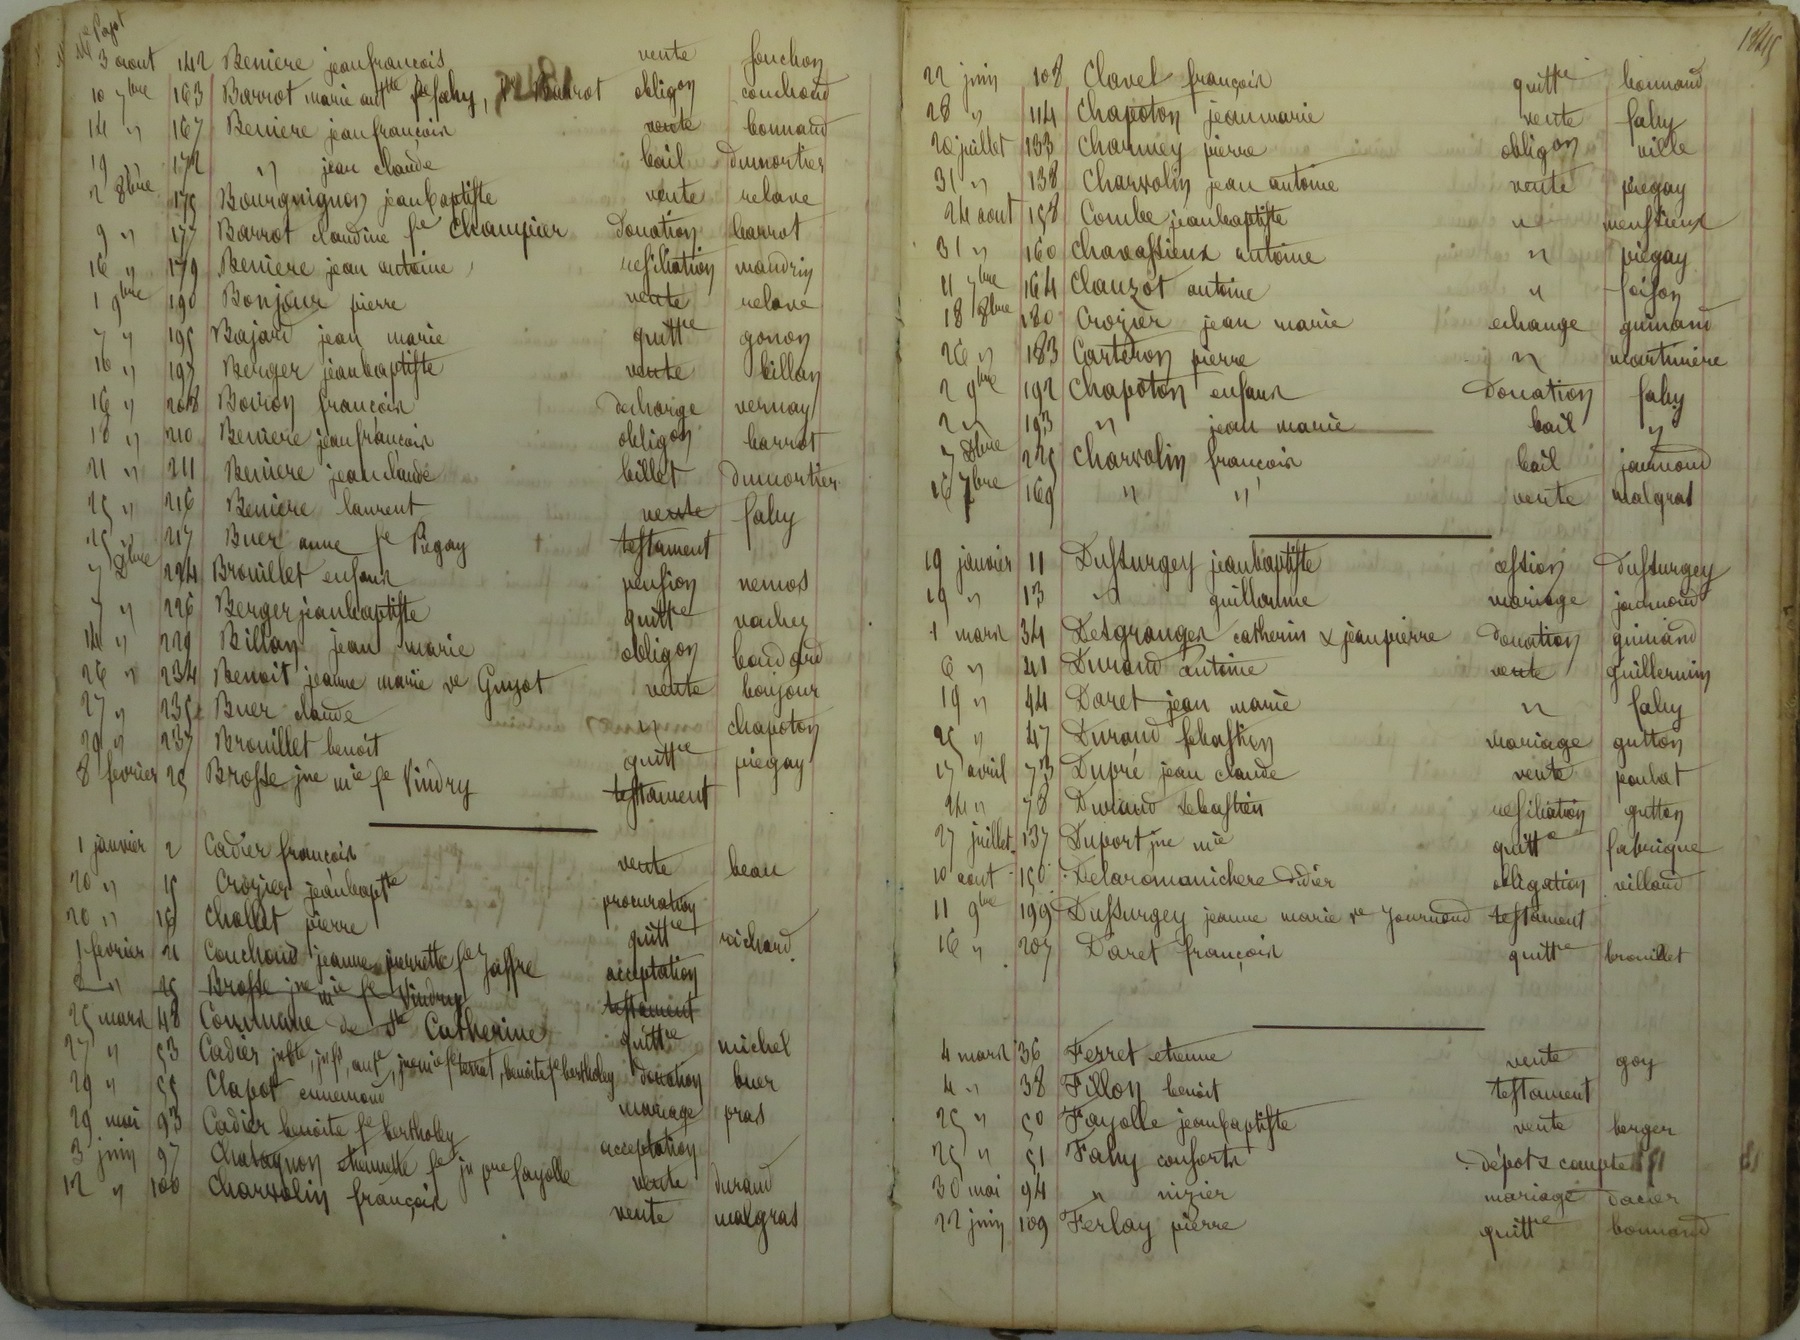 Me Pajot
3 aout 142 Beniere jean françois vente fouchon
10 7bre 163 Barrot marie antte fe fahy, Barrot obligon couchoud
14 " 167 Beniere jean françois vente bonnand
19 172 " jean claude bail dumortier
2 8bre 175 Bourguignon jean baptiste vente relave
9 " 177 Barrot claudine fe Champier donation barrot
16 " 179 Beniere jean antoine resiliation maudrin
1 9bre 190 Bonjour pierre vente relave
7 " 195 Bajard jean marie quittce gonon
16 " 197 Berger jean baptiste vente billan
16 " 208 Boiron françois decharge vernay
18 " 210 Beniere jean françois obligon barrot
21 " 211 Beniere jean claude billet dumortier
25 " 216 Beniere laurent vente fahy
25 " 217 Buer anne fe Piegay testament
7 Xbre 224 Brouillet enfans pension nemos
7 " 226 Berger jean baptiste quittce vachez
14 " 229 Billan jean marie obligon
26 " 234 Benoit jeanne marie ve Guyot vente bonjour
27 " 235 Buer claude " chapoton
29 " 237 Brouillet benoit quittce piegay
8 fevrier 25 Brosse jne mie fe Vindry testament
1 janvier 2 Cadier françois vente beau
20 " 15 Crozier jean baptte procuration
20 " 16 Chollet pierre quittce richard
1 fevrier 21 Couchoud jeanne pierrette fe Joffre acceptation
8 " 25 Brosse jne mie fe Vindry testament
25 mars 48 Commune de Ste Catherine quittce michel
27 " 53 Cadier jn bte, jn fs, ant, jne mie fe terrat, benoite fe bertholey donation buer
29 " 55 Clapot ennemond mariage pras
29 mai 93 Cadier benoite fe bertholey acceptation
3 juin 97 Chatagnon etiennette fe jn pre fayolle vente durand
12 " 100 Charvolin françois vente malgras
1845
22 juin 108 Clavel françois quittce bonnand
28 " 114 Chapoton jean marie vente fahy
20 juillet 133 Charmey pierre obligon ville
31 " 138 Charvolin jean antoine vente piegay
24 aout 158 Combe jean baptiste " monssieux
31 " 160 Chavassieux antoine " piegay
11 7bre 164 Clauzot antoine " foison
18 8bre 180 Crozier jean marie echange guinand
26 " 183 Carteron pierre " martiniere
2 9bre 192 Chapoton enfans Donation fahy
2 " 193 " jean marie bail "
7 Xbre 225 Charvolin françois bail journoud
16 7bre 169 " " vente malgras
19 janvier 11 Dussurgey jean baptiste cession Dussurgey
19 " 13 " guillaume mariage journoud
1 mars 34 Desgranges catherin & jean pierre donation guinand
6 " 41 Durand antoine vente guillermin
19 " 44 Daret jean marie " fahy
25 " 47 Durand sebastien mariage gutton
17 avril 73 Dupré jean claude vente poulat
24 " 78 Durand sebastien resiliation gutton
27 juillet 137 Duport jne mie quittce fabrique
10 aout 150 Delaromanichere Didier obligation villaud
11 9bre 199 Dussurgey jeanne marie ve Journoud testament
16 " 207 Daret françois quittce brouillet
4 mars 36 Ferret etienne vente goy
4 " 38 Fillon benoit testament
25 " 50 Fayolle jean baptiste vente berger
25 " 51 Fahy consorts dépot & compte
30 mai 94 " nizier mariage dacier
22 juin 109 Ferlay pierre quittce bonnand